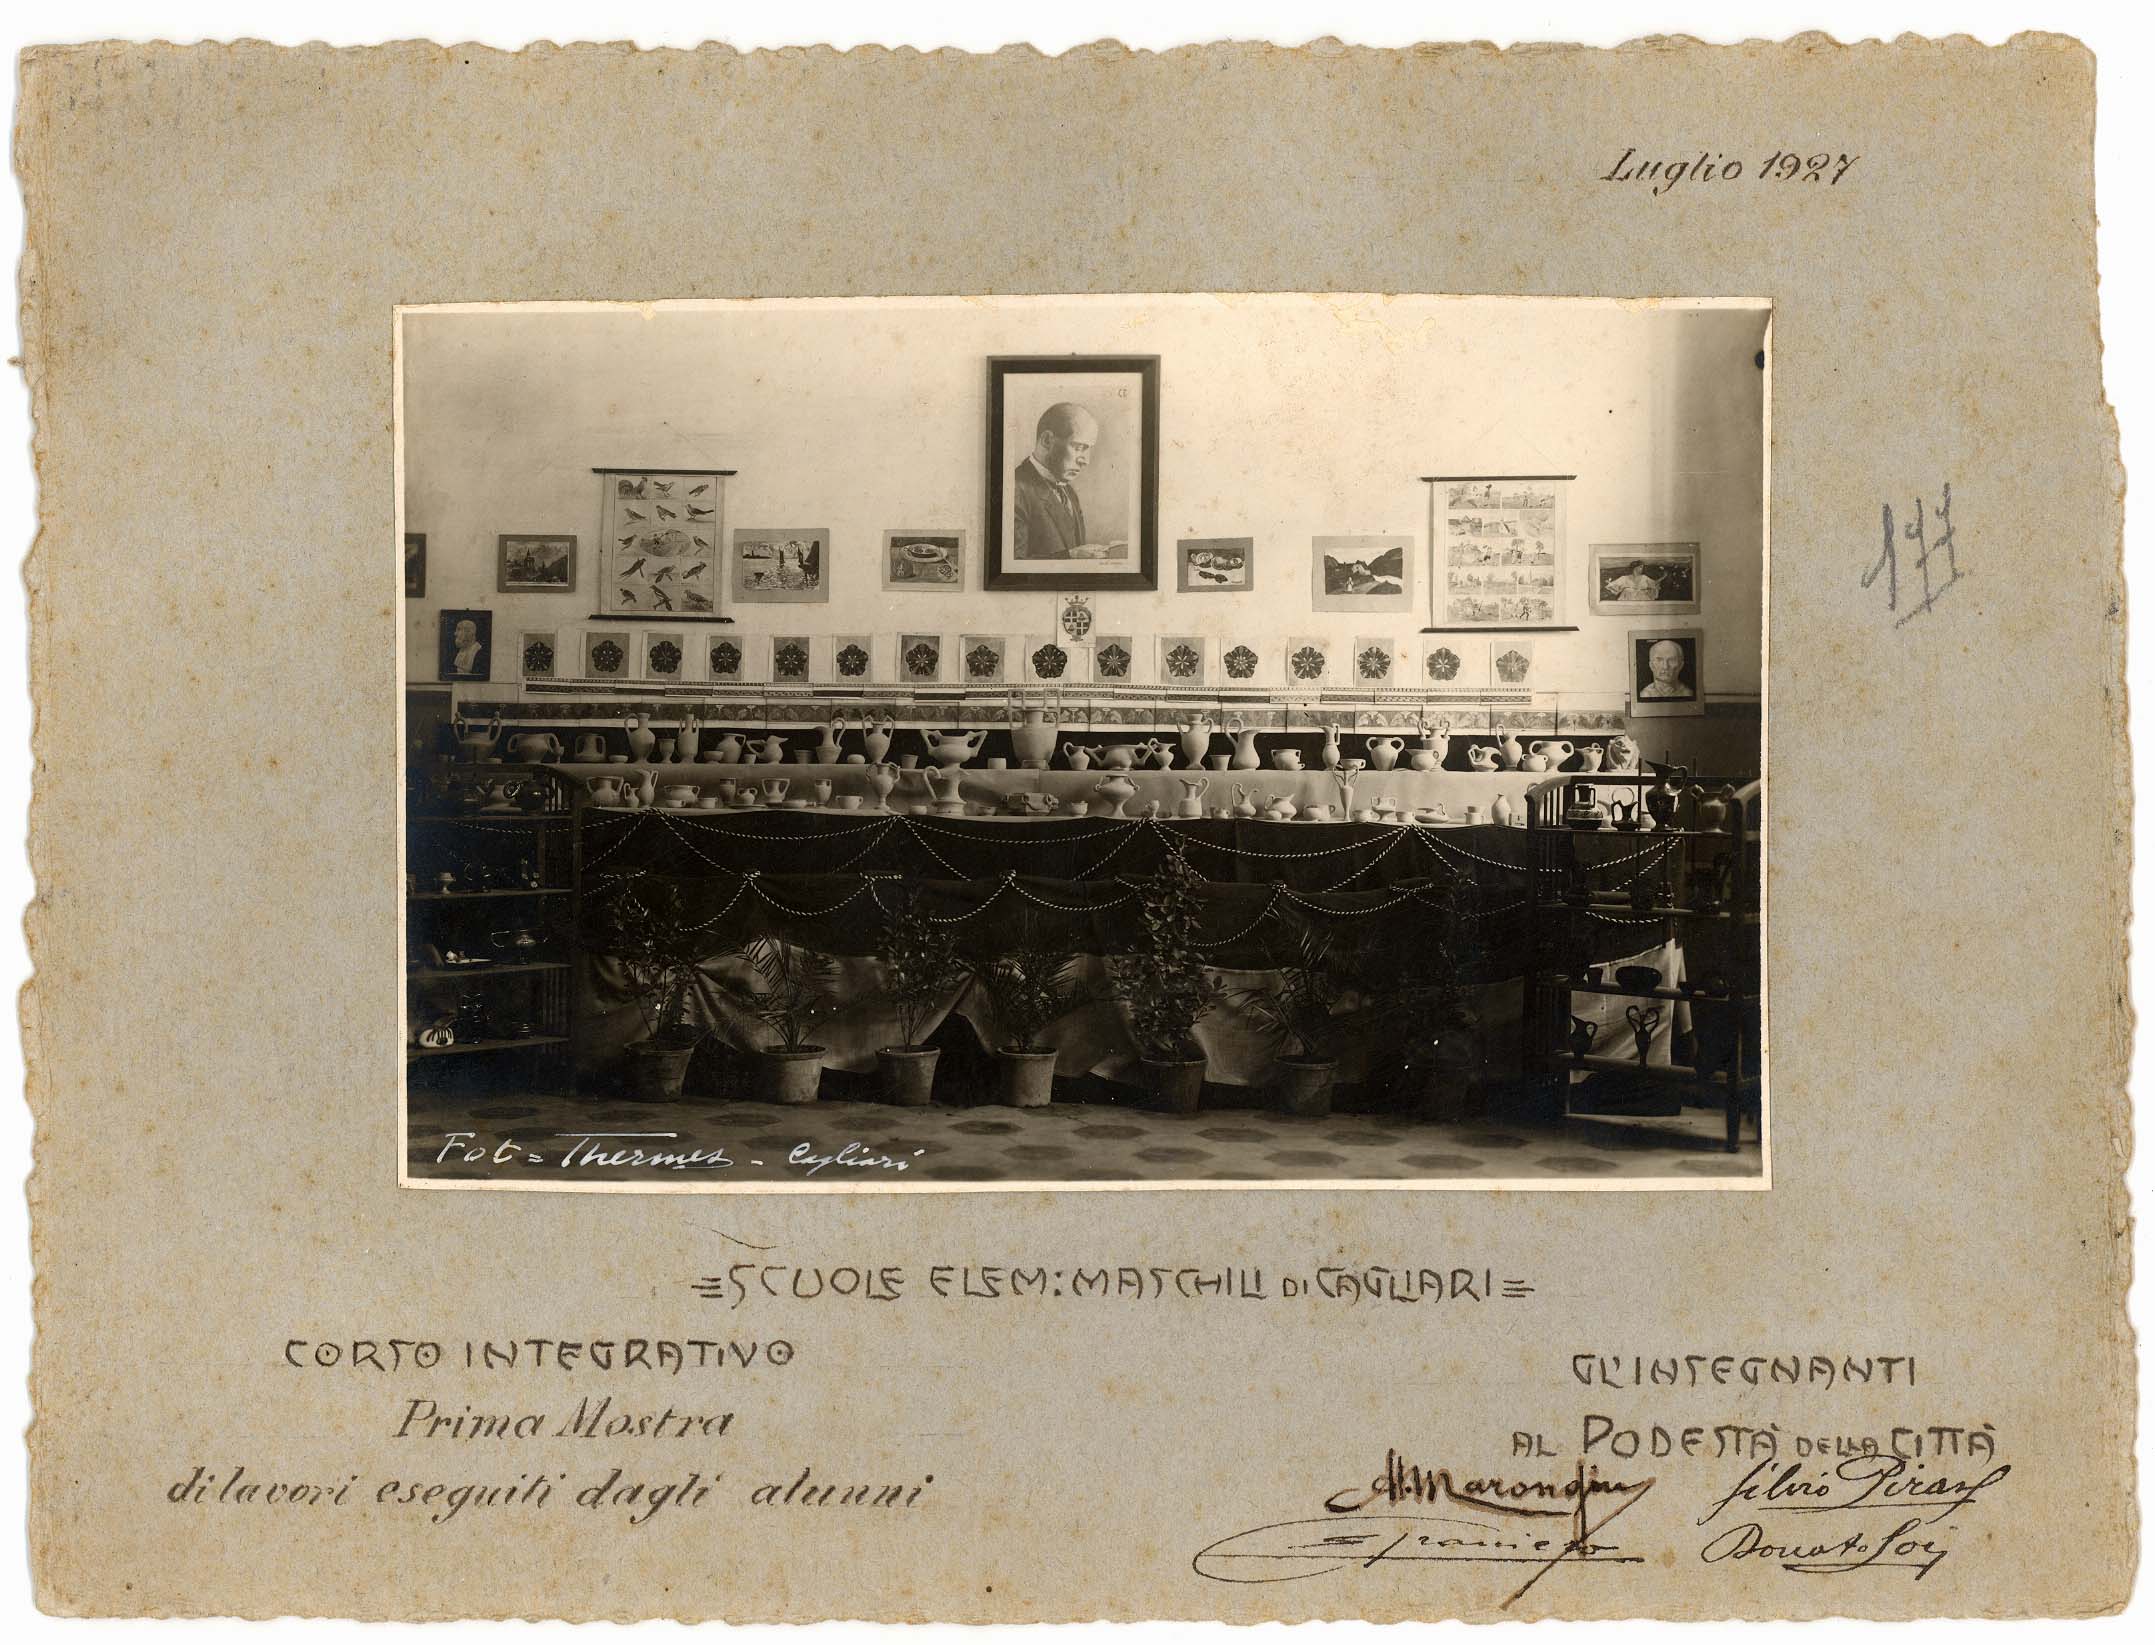 Luglio 1927
177
Fot = Thermes - Cagliari
=SCUOLE ELEM: MASCHILI DI CAGLIARI=
CORSO INTEGRATIVO
Prima Mostra
di lavori eseguiti dagli alunni
GL'INSEGNANTI
AL PODESTÀ DELLA CITTÀ
Silvio Piras
Donato Loi